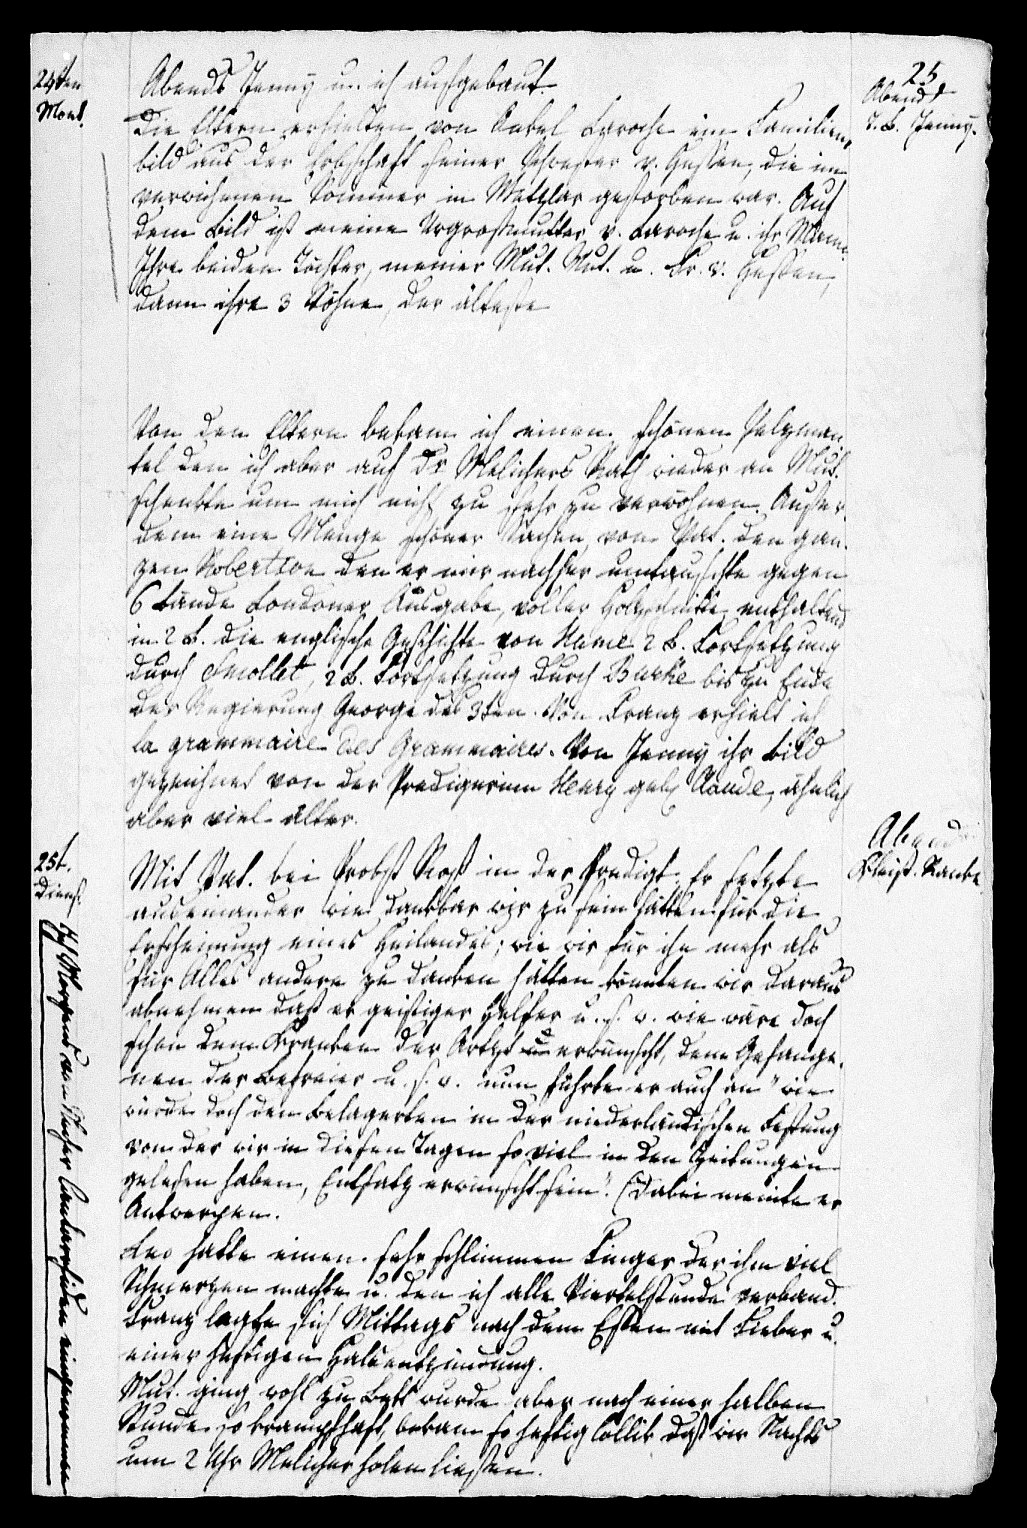 25
24sten
Mont.
Abends Jenny u. ich aufgebaut
Abend
T. B. Jenny.
Die Eltern erhielten von Onkel Laroche ein Familien-
bild aus der Erbschaft seiner Schwester v. Hessen, die im
verwichenen Sommer in Wetzlar gestorben war. Auf
dem Bild ist meine Urgroßmutter v. Laroche u. ihr Mann
Ihre beiden Töchter, meiner Mut. Mut. u. Fr. v. Hessen,
dann ihre 3 Söhne, der älteste
Von den Eltern bekam ich einen schönen Pelzman
tel den ich aber auf Dr Melichers Rath wieder an Mut.
schenkte um mich nicht zu sehr zu verwöhnen. Außer-
dem eine Menge schöner Sachen, von Vat. den gan-
zen Robertson den er mir nachher umtauschte gegen
6 Bände Londoner Ausgabe, voller Holzschnitte, enthaltend
in 2 B. die englische Geschichte von Hume 2 B. Fortsetzung
durch Smollet, 2 B. Fortsetzung durch Burke bis zu Ende
der Regierung George des 3ten. Von Franz erhielt ich
la grammaire des Grammaires. Von Jenny ihr Bild
gezeichnet von der Predigerinn Henry geb. Claude, ähnlich
aber viel älter.
25t.
Dienst.
Abend
Kleist. Rauke
Mit Vat. bei Probst Roß in der Predigt. Er setzte
auseinander wie dankbar wir zu sein hätten für die
Erscheinung eines Heilandes; wie wir für ihn mehr als
für Alles andere zu danken hätten könnten wir daraus
abnehmen daß er geistiger Helfer u. s. w. wie wäre doch
schon dem Kranken der Artzt erwünscht, dem Gefange-
nen der Befreier u. s. w. nun führte er auch an "wie
würde doch den Belagerten in der niederländischen Festung
von der wir in diesen Tagen so viel in den Zeitungen
gelesen haben, Entsatz erwünscht sein". (Dabei meinte er
Antwerpen.
Leo hatte einen sehr schlimmen Finger der ihm viel
Schmerzen machte u. den ich alle Viertelstunde verband.
Franz legte sich Mittags nach dem Essen mit Fieber u.
einer heftigen Halsentzündung.
Mut. ging wohl zu Bett wurde aber nach einer halben
Stunde so krampfhaft, bekam so heftig Collik daß wir Nachts
um 2 Uhr Melicher holen liessen.
Ich Morgens eingenommen